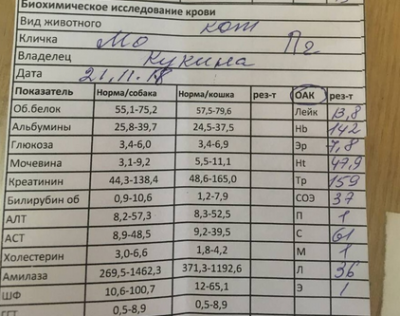 Биохимическое исследование крови
Вид животного кот
Кличка Мо Пг
Владелец Кукина
Дата 21.11.18
Показатель Норма/собака Норма/кошка рез-т ОАК рез-т
Об.белок 55,1-75,2 57,5-79,6 Лейк 13,8
Альбумины 25,8-39,7 24,5-37,5 Hb 142
Глюкоза 3,4-6,0 3,4-6,9 Эр 7,8
Мочевина 3,1-9,2 5,5-11,1 Ht 47,9
Креатинин 44,3-138,4 48,6-165,0 Тр 159
Билирубин об 0,9-10,6 1,2-7,9 СОЭ 37
АЛТ 8,2-57,3 8,3-52,5 П 1
АСТ 8,9-48,5 9,2-39,5 С 61
Холестерин 3,0-6,6 1,8-4,2 М 1
Амилаза 269,5-1462,3 371,3-1192,6 Л 36
ШФ 10,6-100,7 12-65,1 Э 1
ГГТ 0,5-8,9 0,5-8,9